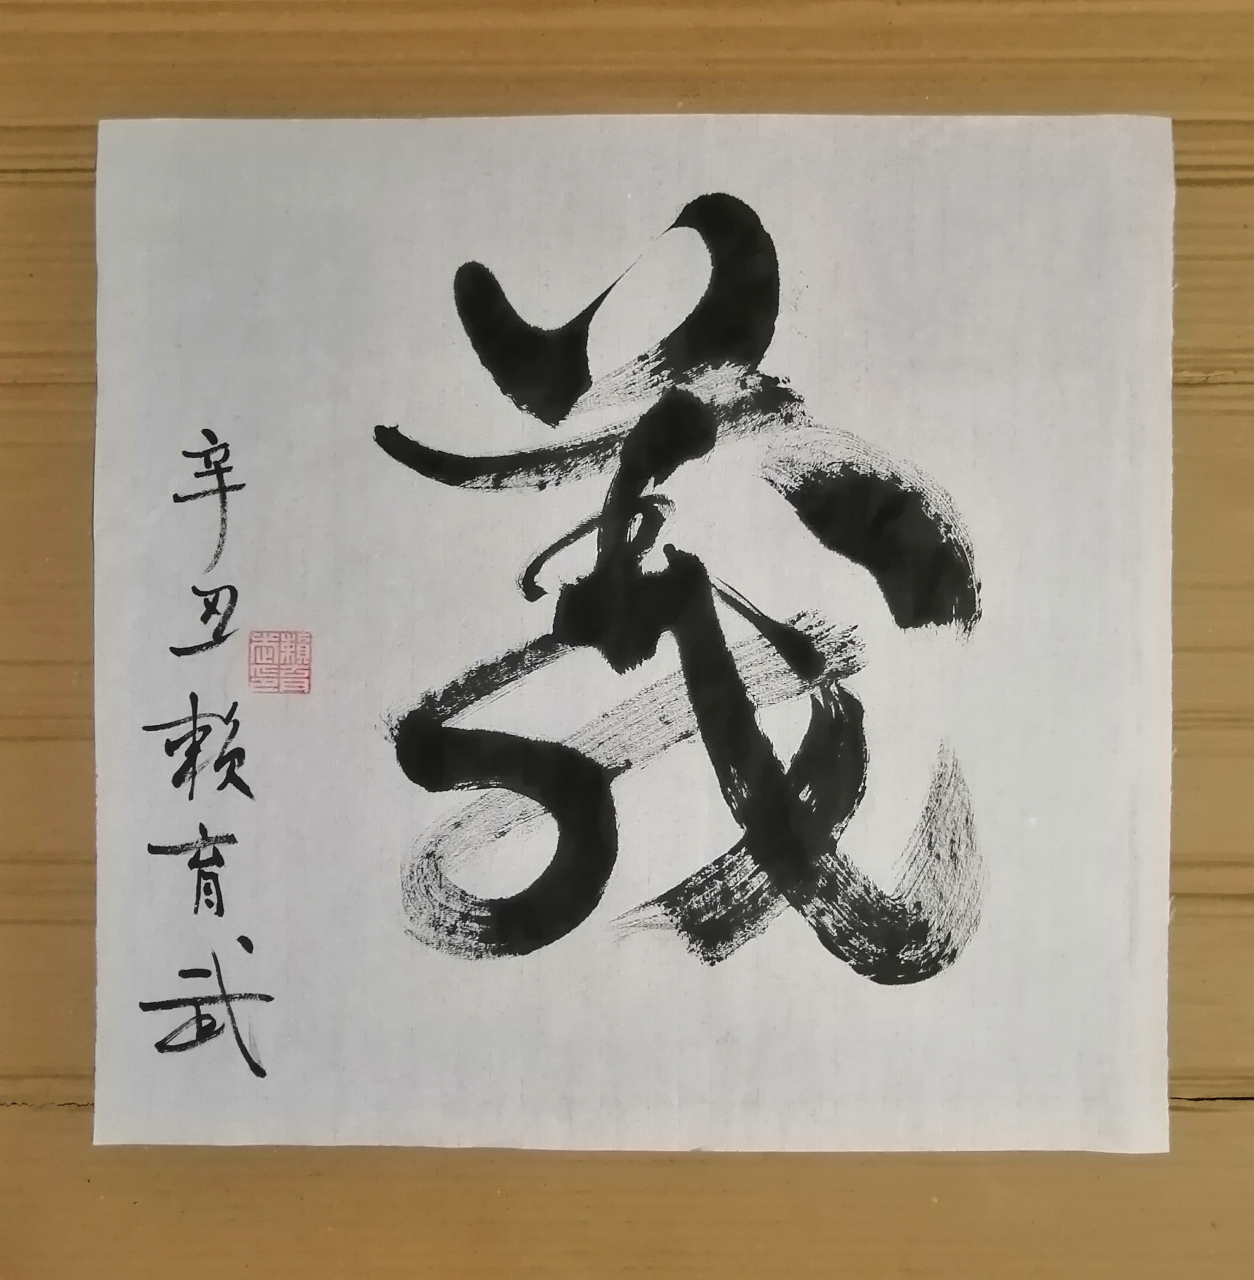 義
辛丑 賴育武
賴育武印